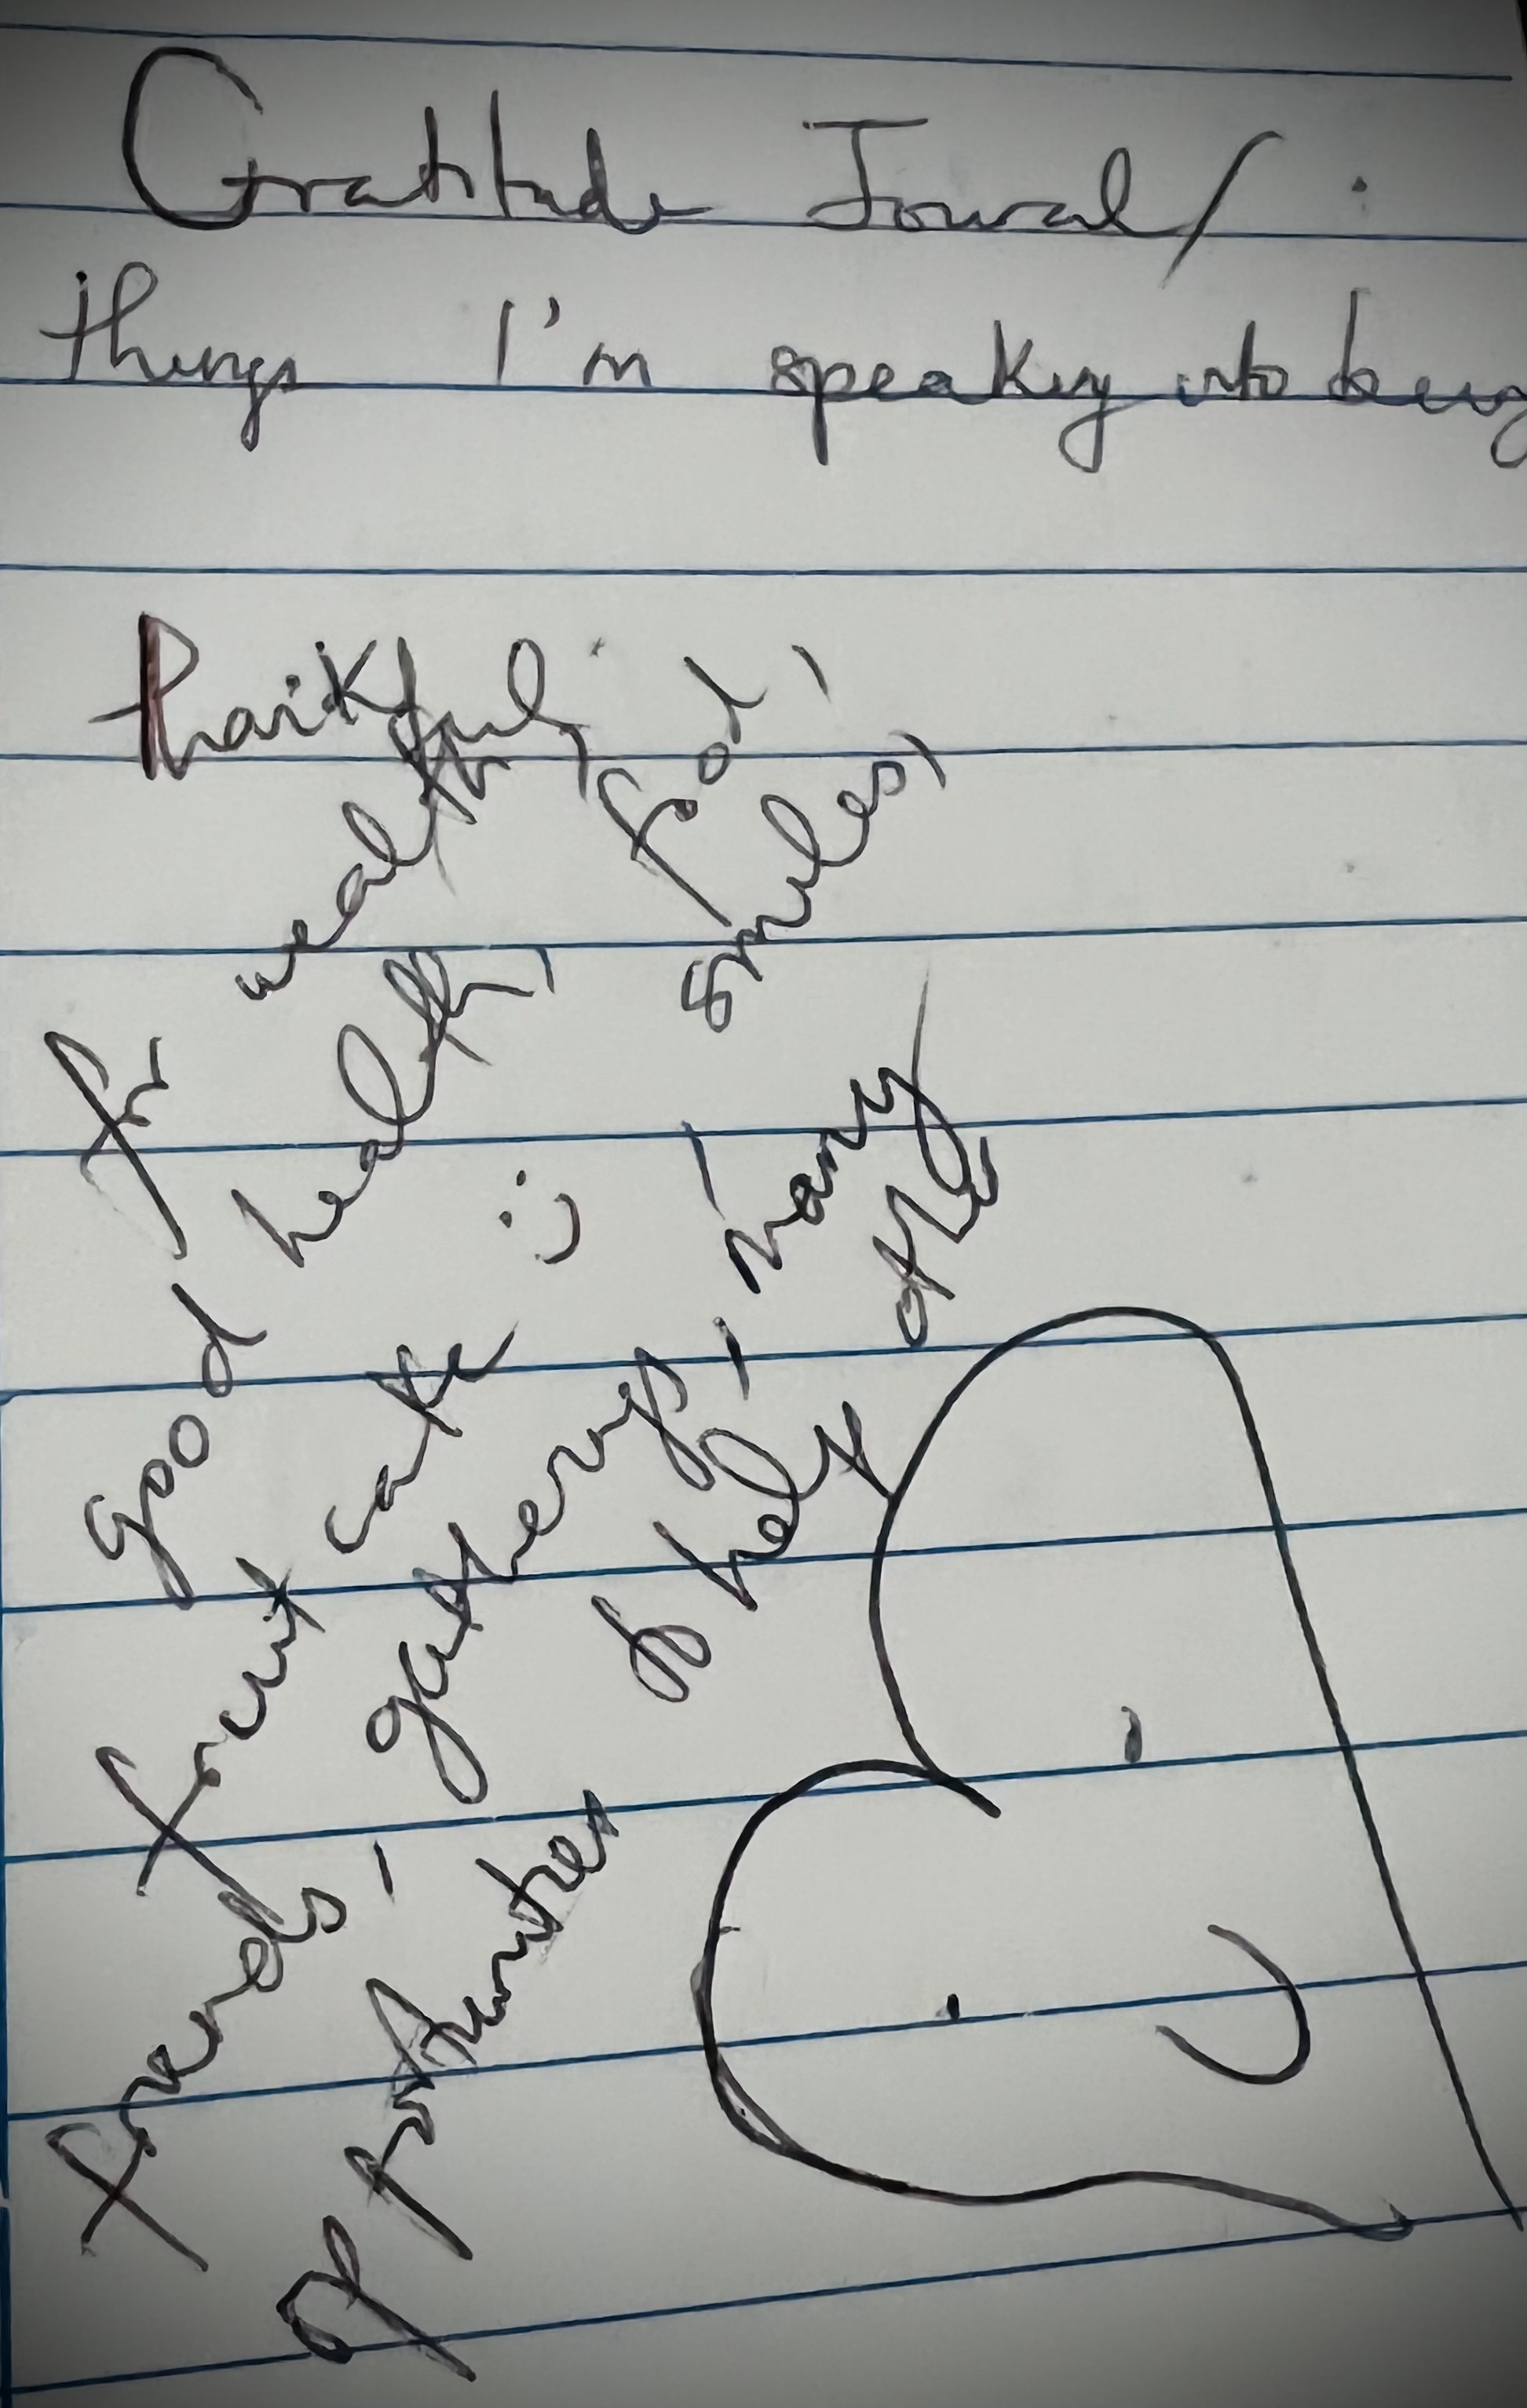 Gratitude Journal/:
things I'm speaking into being
thankful:
for wealth,
good health, food,
fruit cake :) smiles,
friends, gatherings, many
opportunities to help others